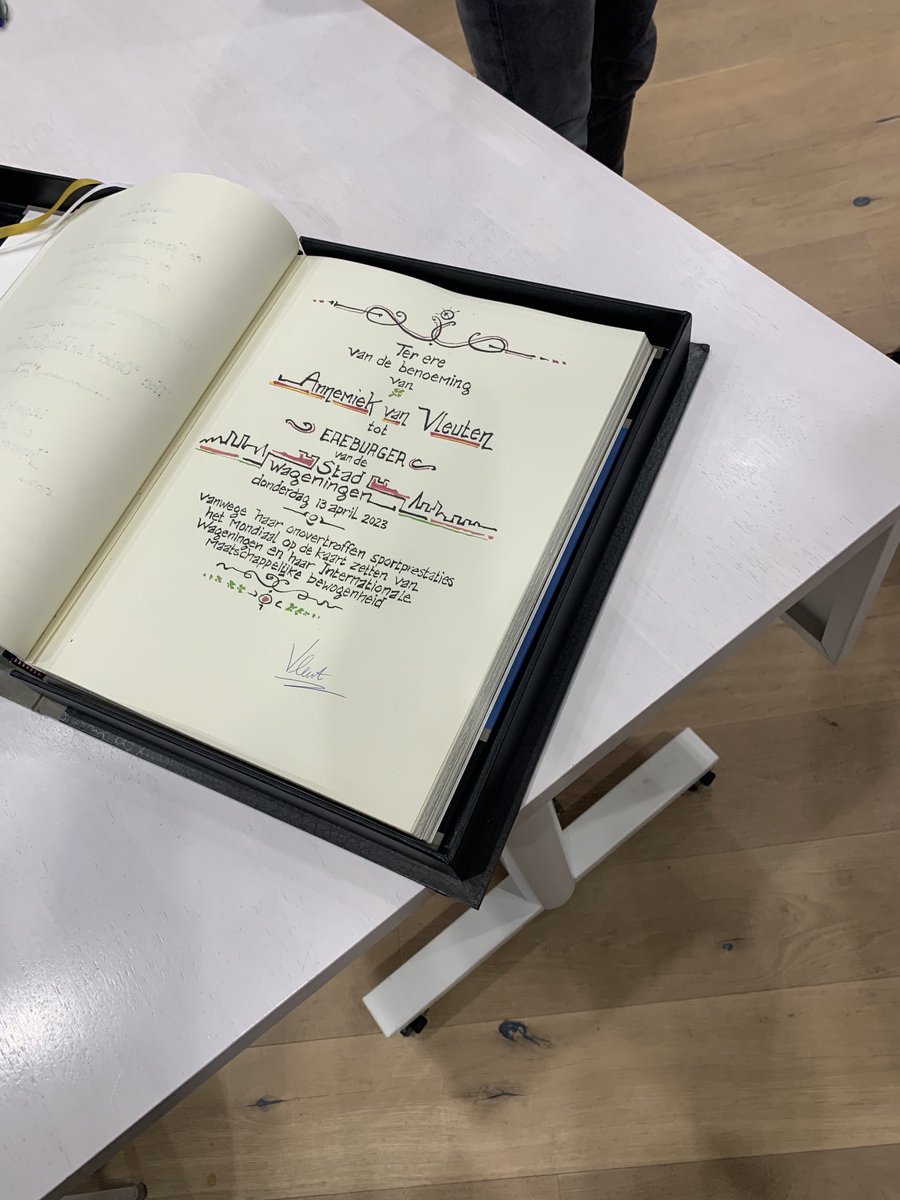 Ter ere
van de benoeming
van
Annemiek van Vleuten
tot
EREBURGER
van de
Stad
Wageningen
donderdag 13 april 2023
vanwege haar onovertroffen sportprestaties
het mondiaal op de kaart zetten van
Wageningen en haar Internationale
Maatschappelijke bewogenheid